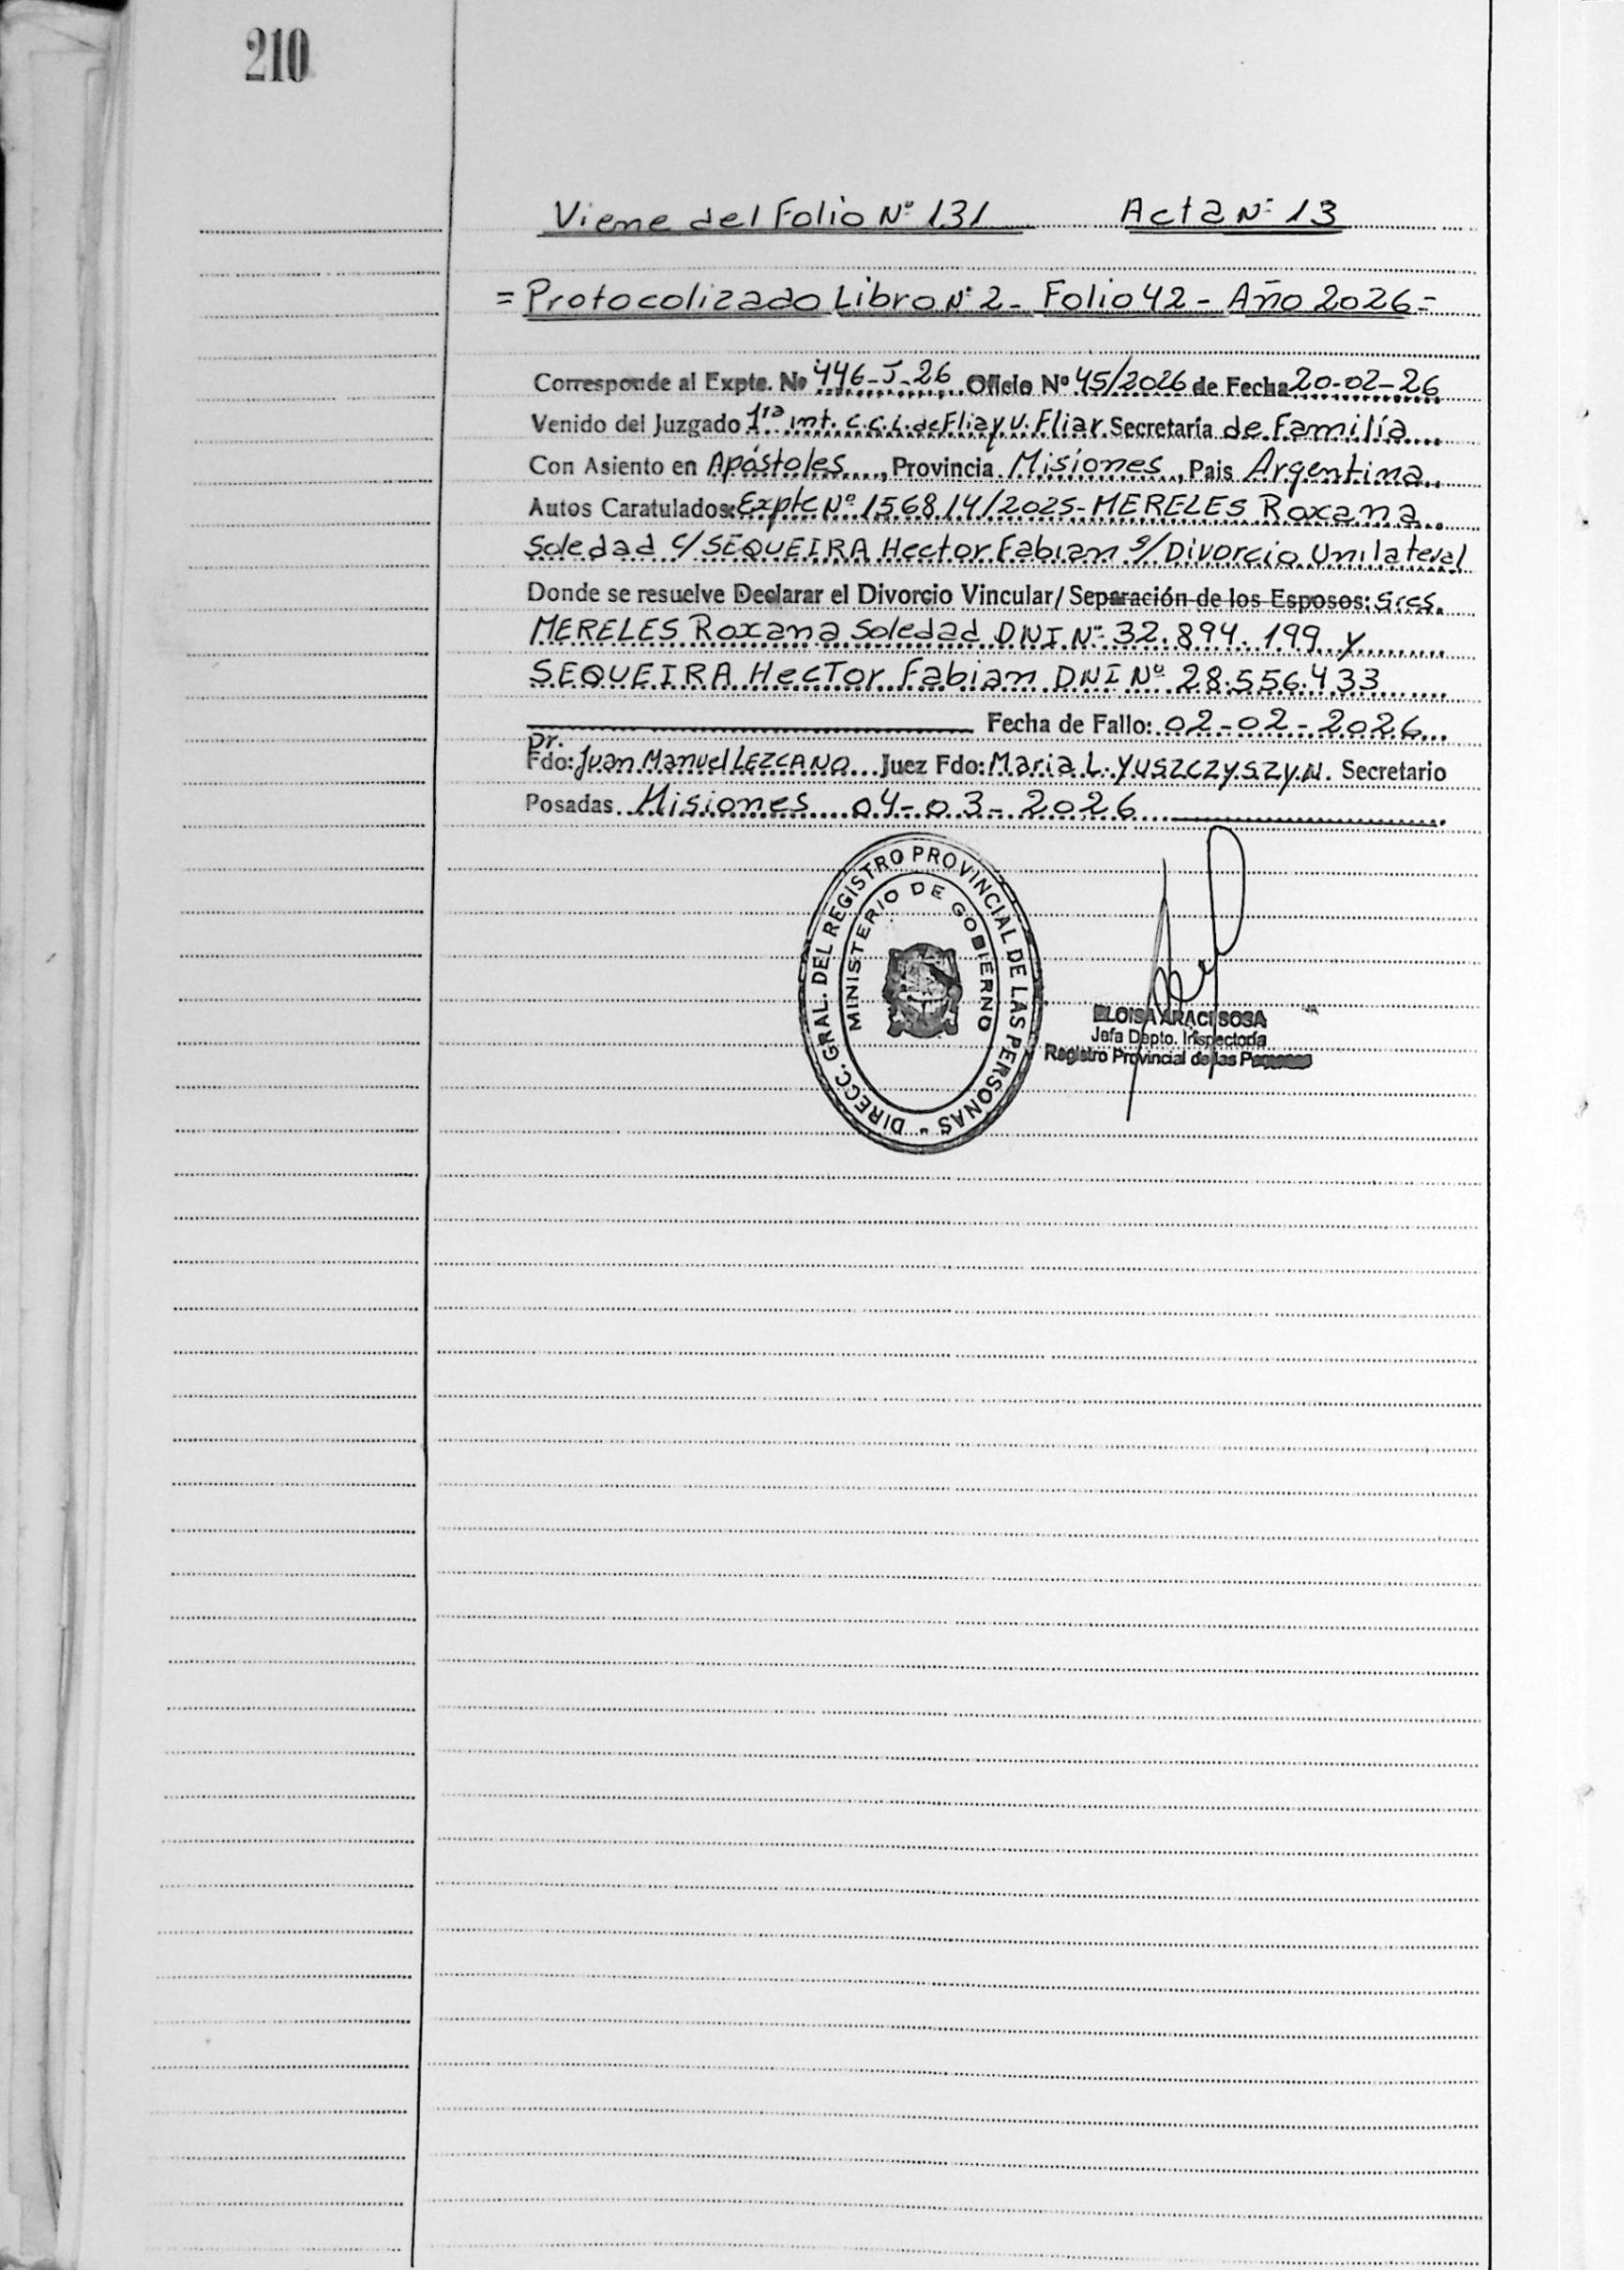 210
Viene del Folio Nº 131 Acta Nº 13
= Protocolizado Libro Nº 2 - Folio 42 - Año 2026 =
Corresponde al Expte. Nº 446-J-26 Oficio Nº 45/2026 de Fecha 20-02-26
Venido del Juzgado 1ra int. C.C.L. de Flia y V. Fliar. Secretaría de Familía
Con Asiento en Apóstoles, Provincia Misiones, Pais Argentina
Autos Caratulados: Expte Nº 156814/2025 - MERELES Roxana
Soledad c/ SEQUEIRA Hector Fabian s/ Divorcio Unilateral
Donde se resuelve Declarar el Divorcio Vincular/ Separación de los Esposos: Sres.
MERELES Roxana Soledad DNI Nº 32.894.199 y
SEQUEIRA Hector Fabian DNI Nº 28.556.433
Fecha de Fallo: 02-02-2026
Dr.
Fdo: Juan Manuel LEZCANO Juez Fdo: Maria L. YUSZCZYSZYN. Secretario
Posadas Misiones 04-03-2026
DIRECC. GRAL. DEL REGISTRO PROVINCIAL DE LAS PERSONAS -
MINISTERIO DE GOBIERNO
ELOISA ARACI SOSA
Jefa Depto. Inspectoría
Registro Provincial de las Personas